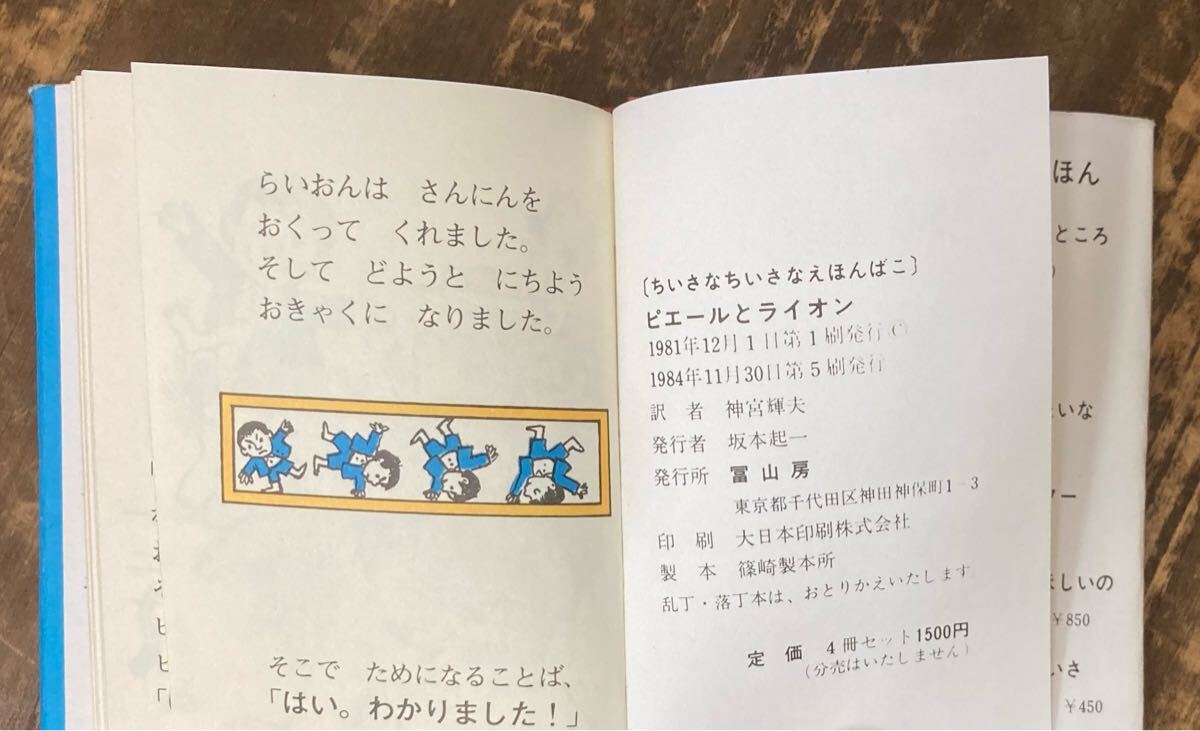 らいおんは　さんにんを
おくって　くれました。
そして　どようと　にちよう
おきゃくに　なりました。
そこで　ためになることば、
「はい。わかりました！」
〔ちいさなちいさなえほんばこ〕
ピエールとライオン
1981年12月1日第1刷発行©
1984年11月30日第5刷発行
訳　者　神宮輝夫
発行者　坂本起一
発行所　冨山房
東京都千代田区神田神保町1-3
印　刷　大日本印刷株式会社
製　本　篠崎製本所
乱丁・落丁本は、おとりかえいたします
定　価　4冊セット1500円
（分売はいたしません）
ほん
ところ
いな
ー
しいの
￥850
いさ
￥450